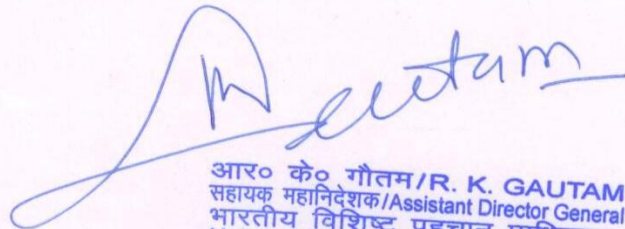 Gautam
आर० के० गौतम/R. K. GAUTAM
सहायक महानिदेशक/Assistant Director General
भारतीय विशिष्ट पहचान